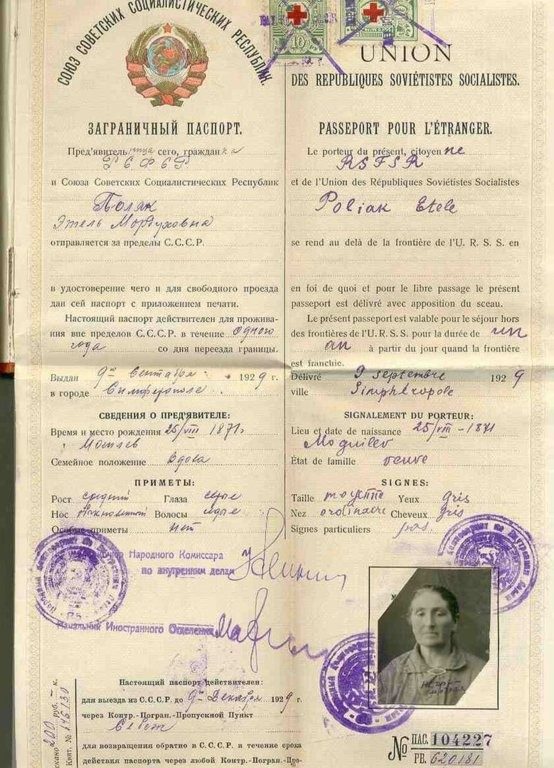 СОЮЗ СОВЕТСКИХ СОЦИАЛИСТИЧЕСКИХ РЕСПУБЛИК.
ЗАГРАНИЧНЫЙ ПАСПОРТ.
Пред'явитель ница сего, граждан ка
РСФСР
и Союза Советских Социалистических Республик
Поляк
Этель Мордуховна
отправляется за пределы С.С.С.Р.
в удостоверение чего и для свободного проезда
дан сей паспорт с приложением печати.
Настоящий паспорт действителен для прожива-
ния вне пределов С.С.С.Р. в течение одного
года со дня переезда границы.
Выдан 9го Сентября 1929 г.
в городе Симферополе
СВЕДЕНИЯ О ПРЕД'ЯВИТЕЛЕ:
Время и место рождения 25/VIII 1871г.
Могилев
Семейное положение вдова
ПРИМЕТЫ:
Рост средний Глаза серые
Нос Волосы серые
Особые приметы нет
Народного Комиссара
по внутренним делам
Начальник Иностранного Отделения
Настоящий паспорт действителен:
для выезда из С.С.С.Р. до 9го Декабря 1929 г.
через Контр.-Погран.-Пропускной Пункт
для возвращения обратно в С.С.С.Р. в течение срока
действия паспорта через любой Контр.-Погран.-Про-
UNION
DES REPUBLIQUES SOVIÉTISTES SOCIALISTES.
PASSEPORT POUR L'ÉTRANGER.
Le porteur du présent, citoyen ne
RSFSR
et de l'Union des Républiques Soviétistes Socialistes
Poliak Etele
se rend au delà de la frontière de l'U. R. S. S. en
en foi de quoi et pour le libre passage le présent
passeport est délivré avec apposition du sceau.
Le présent passeport est valable pour le séjour hors
des frontières de l'U. R. S. S. pour la durée de un
an à partir du jour quand la frontière
est franchie.
Délivré 9 septembre 1929
ville Simphéropole
SIGNALEMENT DU PORTEUR:
Lieu et date de naissance 25/VIII-1871
Moguilev
État de famille veuve
SIGNES:
Taille moyenne Yeux gris
Nez ordinaire Cheveux gris
Signes particuliers pas
№ ПАС. 104227
РЕ. 620181